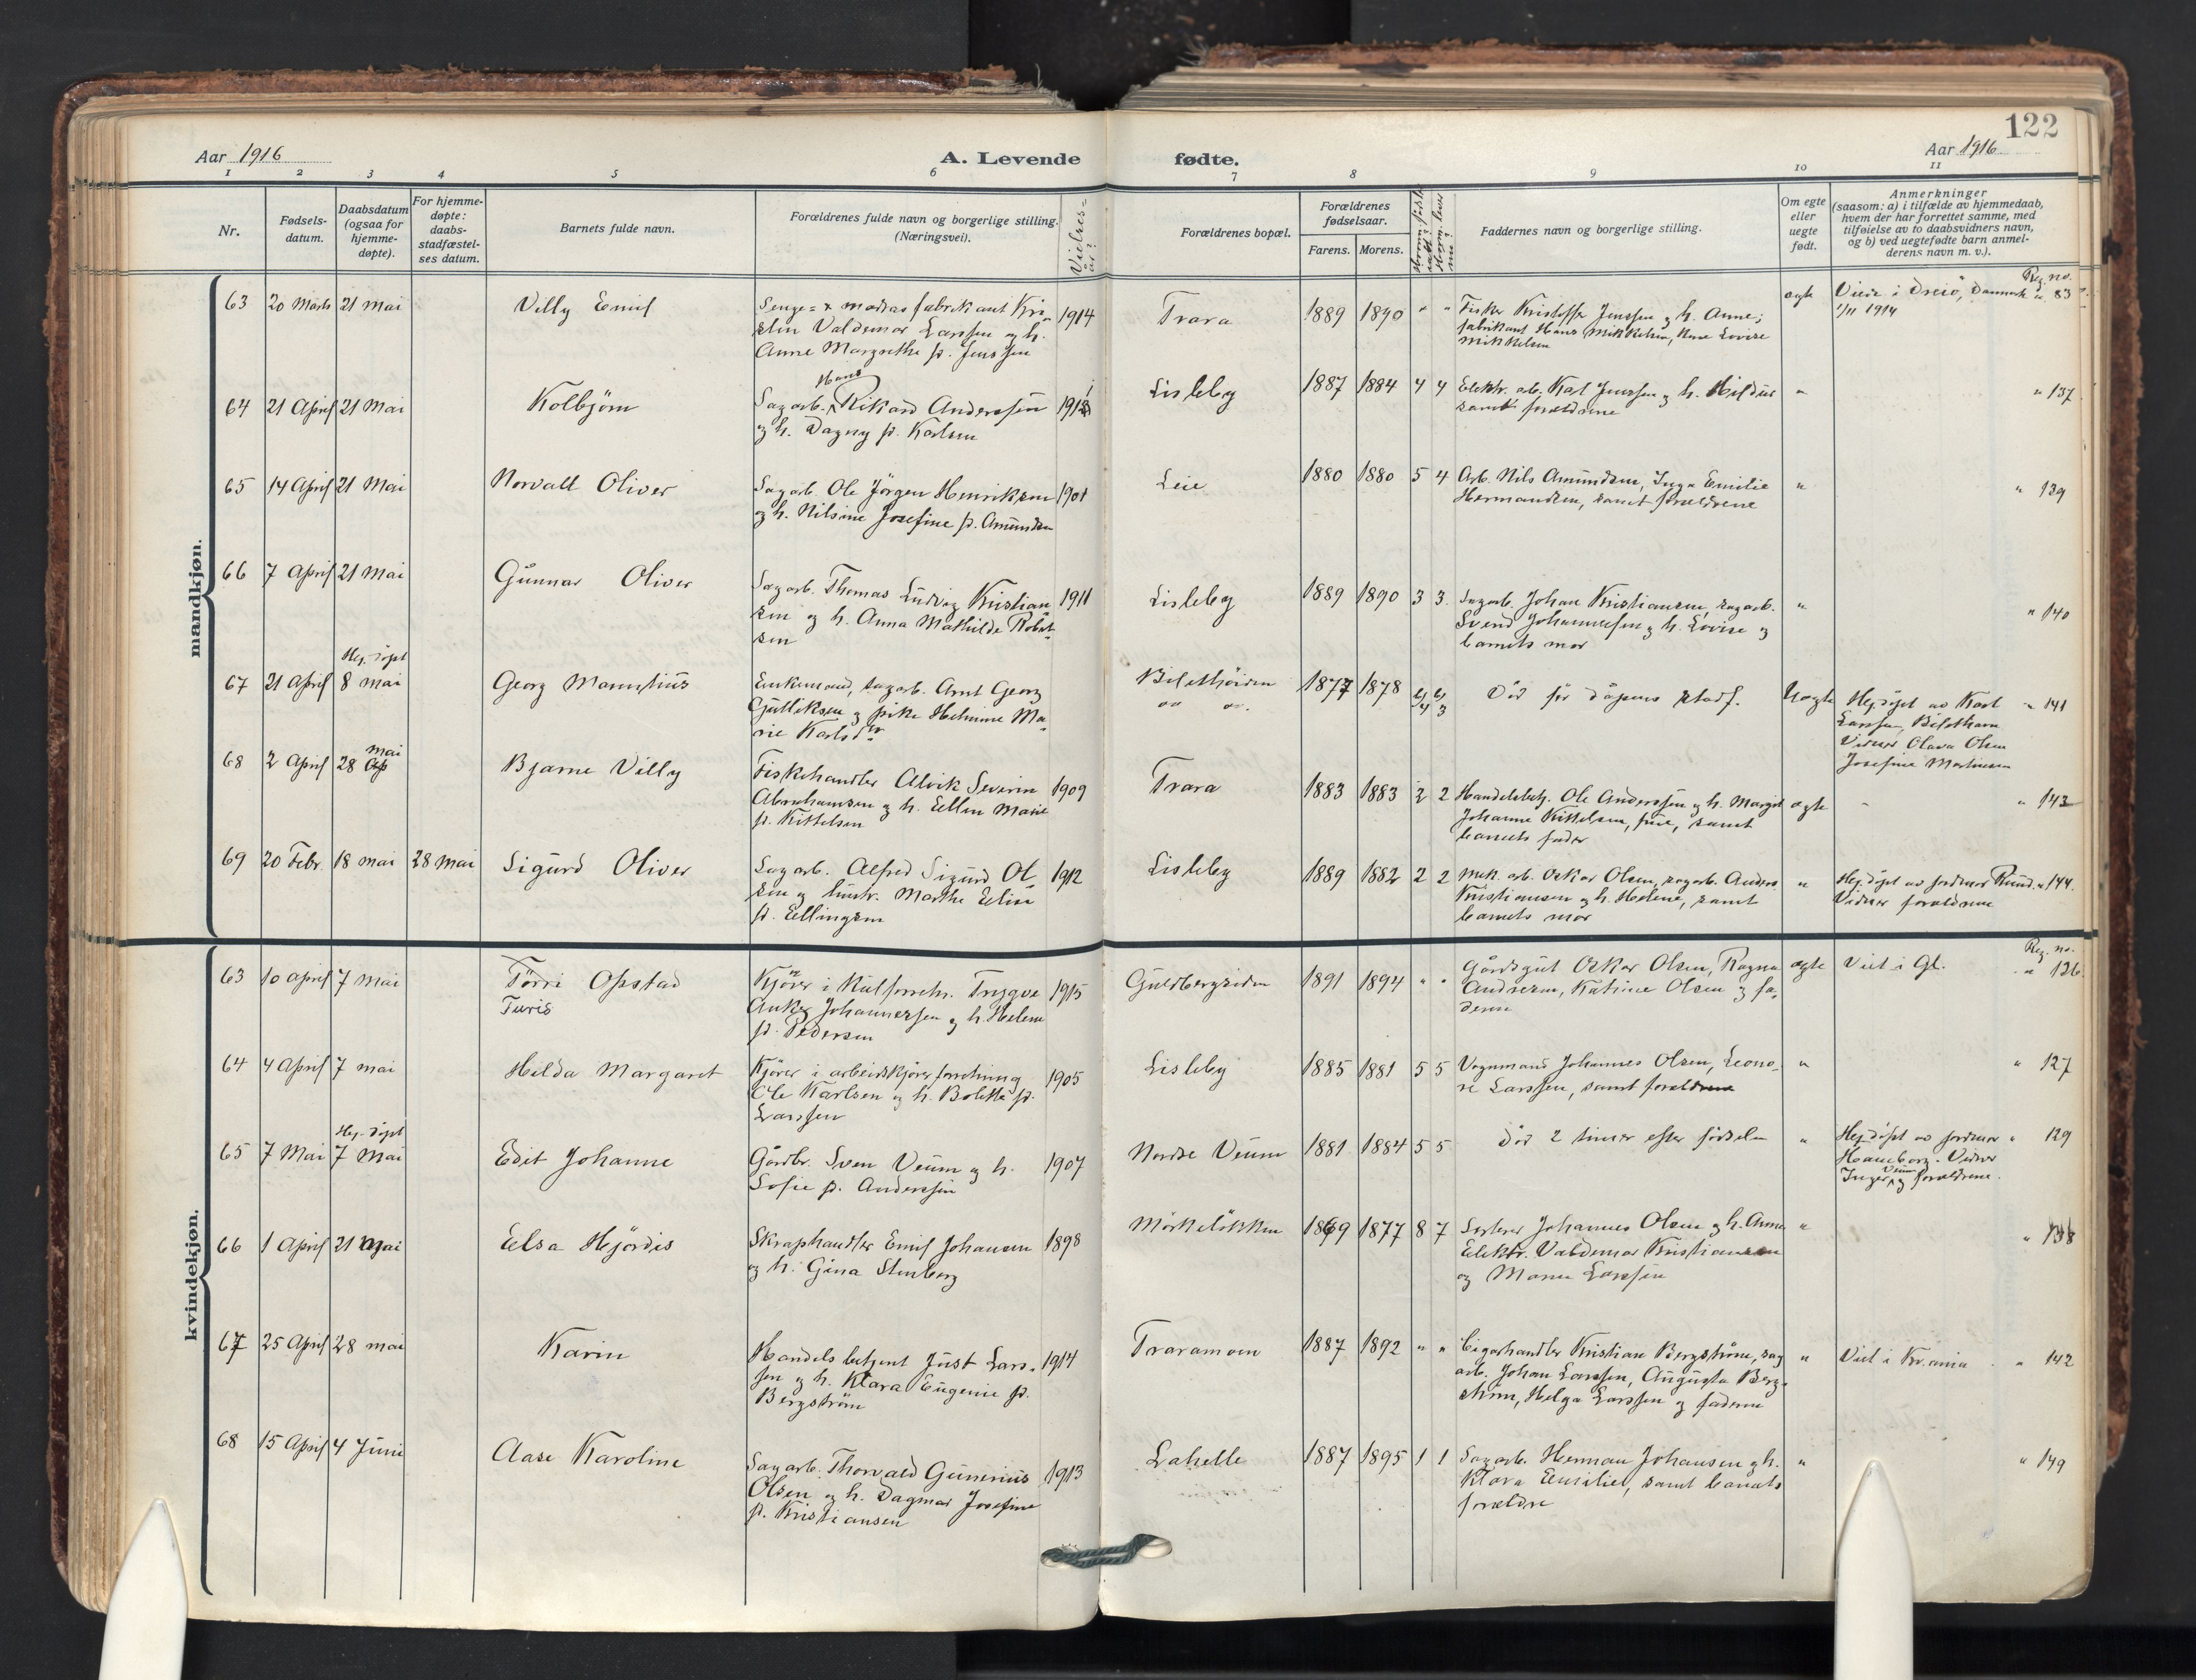 122
Aar 1916
A. Levende
fødte.
Aar 1916
1 2 3 4 5 6 7 8 9 10 11
Nr.
Fødsels-
datum.
Daabsdatum
(ogsaa for
hjemme-
døpte).
For hjemme-
døpte:
daabs-
stadfæstel-
ses datum.
Barnets fulde navn.
Forældrenes fulde navn og borgerlige stilling.
(Næringsvei).
Vielses-
år?
Forældrenes bopæl.
Forældrenes
fødselsaar.
Farens. Morens.
Faddernes navn og borgerlige stilling.
Om egte
eller
uegte
født.
Anmerkninger
(saasom: a) i tilfælde av hjemmedaab,
hvem der har forrettet samme, med
tilføielse av to daabsvidners navn,
og b) ved uegtefødte barn anmel-
derens navn m. v.).
mandkjøn.
Reg. no.
63 20 Marts 21 Mai Villy Emil
Senge= & madrasfabrikant Kri-
stin Valdemar Larssen og h.
Anne Margrethe f. Jenssen
1914 Trara 1889 1890 " "
Fisker Kristoffer Jenssen og h. Anne;
fabrikant Hans Mikkelsen, Anne Lovise
Mikkelsen
egte
Viede i Dreiö, Danmark " 83
1/11 1914
64 21 April 21 Mai Kolbjörn
Hans
Sagarb. Rikard Anderssen
og h. Dagny f. Karlsen
Lisleby 1887 1884 4 4
Elektr. arb. Karl Jenssen og h. Hildur
samt forældrene
" " 137
65 14 April 21 Mai Norvall Oliver
Sagarb. Ole Jörgen Henriksen
og h. Nilsine Josefine f. Amundsen
1901 Leie 1880 1880 5 4
Arb. Nils Amundsen, Inga Emilie
Hermandsen, samt forældrene
" " 139
66 7 April 21 Mai Gunnar Oliver
Sagarb. Thomas Ludvig Kristian
sen og h. Anna Mathilde Robert-
sen
1911 Lisleby 1889 1890 3 3
Sagarb. Johan Kristiansen, sagarb.
Svend Johannessen og h. Lovise og
barnets mor
" " 140
Hj. döpt
67 21 April 8 Mai Georg
Enkemand, sagarb. Arnt Georg
Gulliksen og pike Helmine Ma-
rie Karlsdtr
1877 1878
Död för dåpens stadf.
Uegte
Hj.döpt av Karl " 141
Larssen,
Vidner Olava Olsen
Josefine Martinsen
68 2 April 28 Mai Bjarne Villy
Fiskehandler Alvik Severin
Abrahamsen og h. Ellen Marie
f. Kittelsen
1909 Trara 1883 1883 2 2
Handelsbetj. Ole Anderssen og h. Margit
Johanne Kittelsen, frue, samt
barnets fader
egte " 143
69 20 Febr. 18 Mai 28 Mai Sigurd Oliver
Sagarb. Alfred Sigurd Ol-
sen og hustr. Marthe Eline
f. Ellingsen
1912 Lisleby 1889 1882 2 2
Mek. arb. Oskar Olsen, sagarb. Anders
Kristiansen og h. Helene, samt
barnets mor
"
Hj.döpt av jordmor Rund. " 144.
Vidner forældrene
kvindekjøn.
Reg. no.
63 10 April 7 Mai Opstad
Turid
Kjörer i kulforretn. Trygve
Anker Johannessen og h. Helene
f. Pedersen
1915 Guldbergsiden 1891 1894 " "
Gårdsgut Oskar Olsen, Ragna
Andresen, Katrine Olsen og fa-
deren
egte Viet i Gl. " 126.
64 4 April 7 Mai Hilda Margaret
Kjörer i arbeidskjörerforretning
Ole Karlsen og h. Bolette f.
Larssen
1905 Lisleby 1885 1881 5 5
Vognmand Johannes Olsen, Leono-
re Larssen, samt forældrene
" " 127
Hj. döpt
65 7 Mai 7 Mai Edit Johanne
Gårdbr. Sven Veum og h.
Sofie f. Anderssen
1907 Nordre Veum 1881 1884 5 5
Död 2 timer efter födselen
"
Hj.döpt av jordmor " 129
Haneborg. Vidner
Inger Veum og forældrene.
66 1 April 21 Mai Elsa Hjördis
Skraphandler Emil Johansen
og h. Gina Stenberg
1898 Mörkelökken 1869 1877 8 7
Johannes Olsen og h. Anna
Elektr. Valdemar Kristiansen
og Marie Larssen
" " 138
67 25 April 28 Mai Karin
Handelsbetjent Just Lars-
sen og h. Klara Eugenie f.
Bergström
1914 Traramoen 1887 1892 " "
Cigarhandler Kristian Bergström, sag
arb. Johan Larssen, Augusta Berg-
ström, Helga Larssen og faderen
" Viet i Kr.ania " 142
68 15 April 4 Juni Aase Karoline
Sagarb. Thorvald Gunerius
Olsen og h. Dagmar Josefine
f. Kristiansen
1913 Lahelle 1887 1895 1 1
Sagarb. Herman Johansen og h.
Klara Emilie, samt barnets
forældre
" " 149